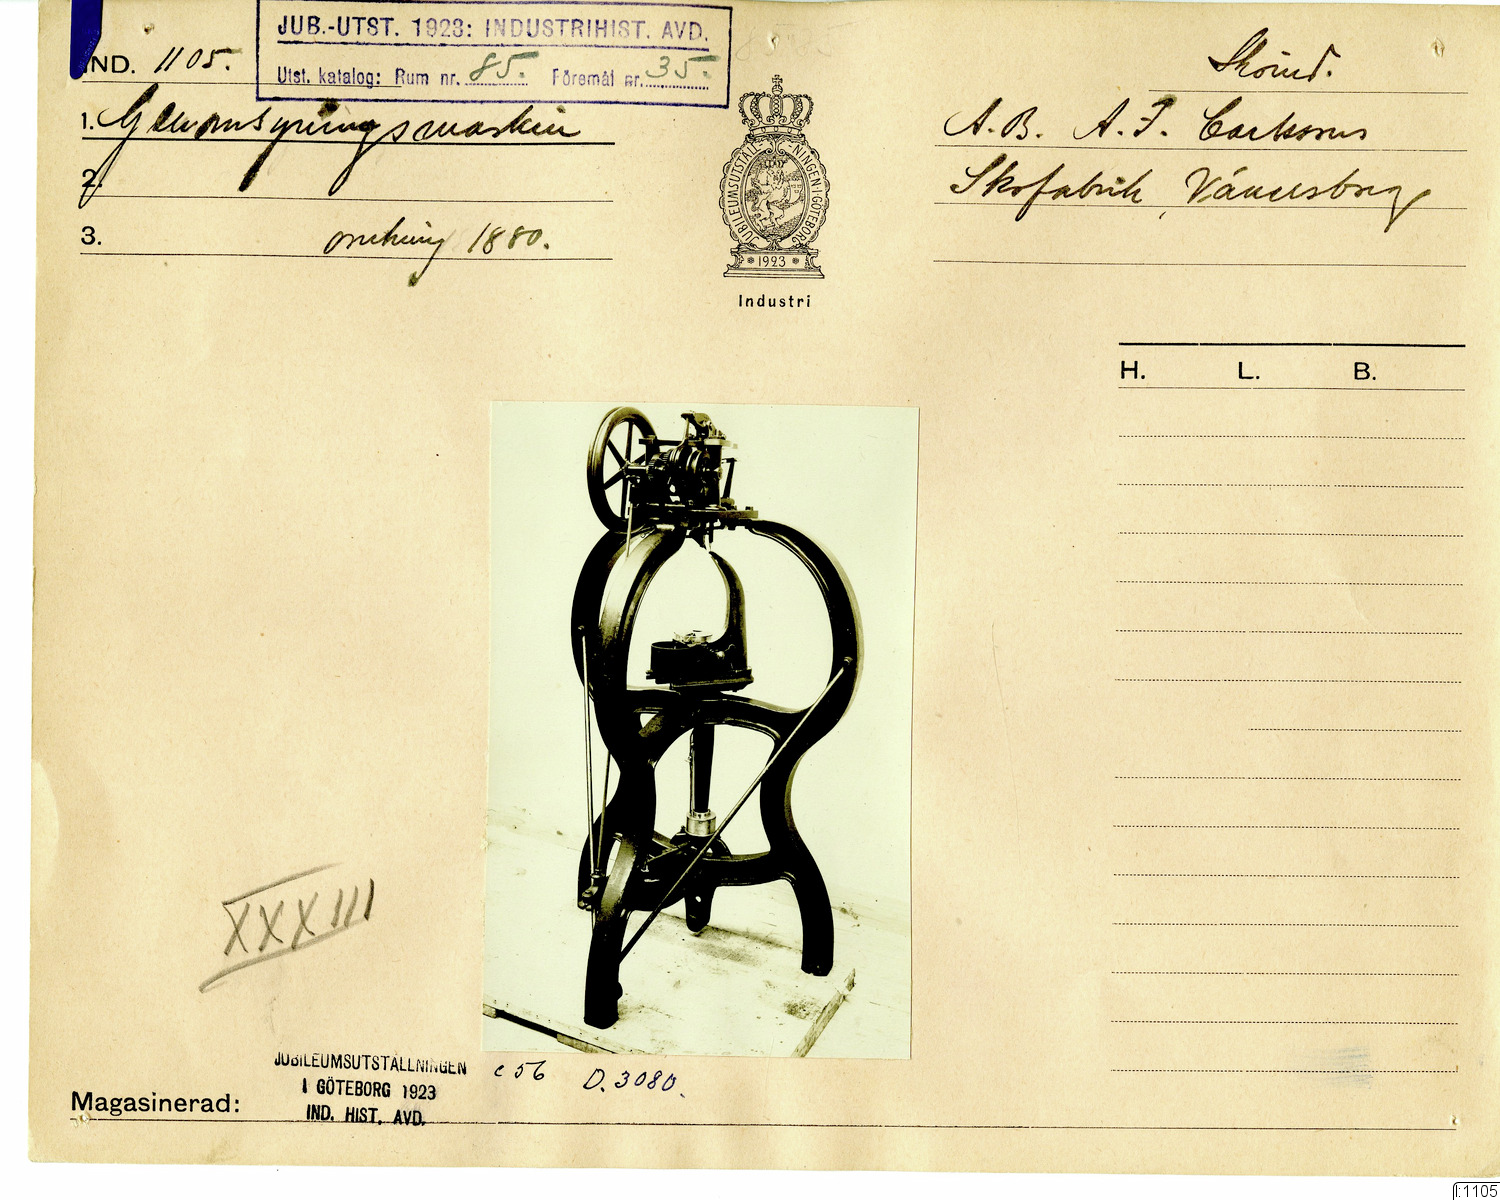 JUB.-UTST. 1923: INDUSTRIHIST. AVD.
Utst. katalog: Rum nr. 85. Föremål nr. 35.
IND. 1105.
1. Genomsyningsmaskin
2.
3. omkring 1880.
JUBILEUMSUTSTÄLLNINGEN I GÖTEBORG
1923
Industri
Skoind.
A.B. A.F. Carlssons
Skofabrik, Vänersborg
H. L. B.
XXXIII
JUBILEUMSUTSTÄLLNINGEN
I GÖTEBORG 1923
IND. HIST. AVD.
c 56 D. 3080.
Magasinerad:
I:1105